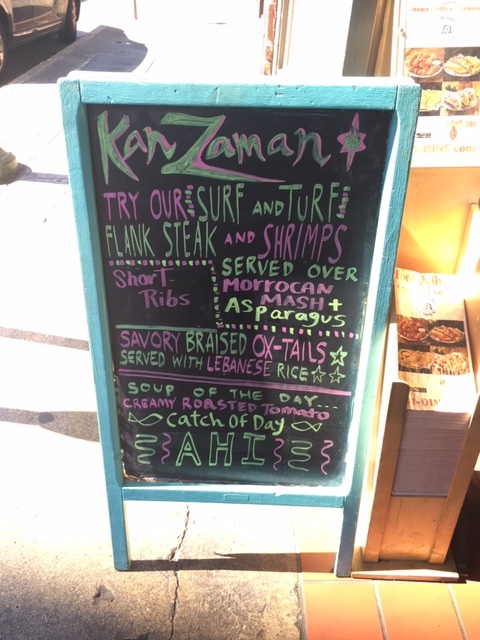 Kan Zaman
TRY OUR SURF AND TURF
FLANK STEAK AND SHRIMPS
Short Ribs
SERVED OVER
MORROCAN
MASH +
Asparagus
SAVORY BRAISED OX-TAILS
SERVED WITH LEBANESE RICE
SOUP OF THE DAY...
CREAMY ROASTED Tomato
Catch Of Day
AHI